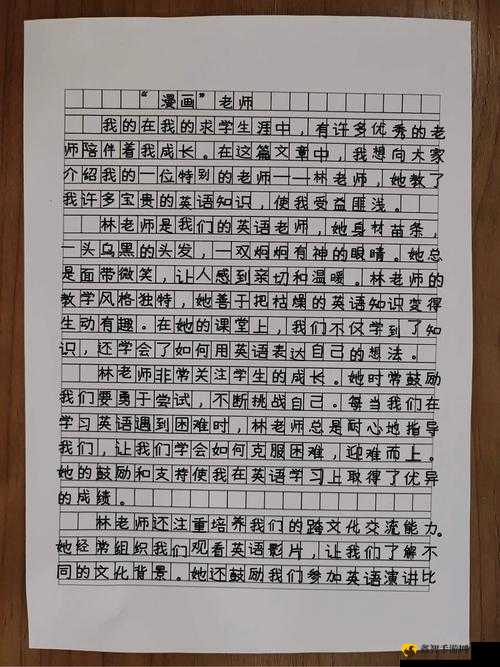 “漫画”老师
我的在我的求学生涯中，有许多优秀的老
师陪伴着我成长。在这篇文章中，我想向大家
介绍我的一位特别的老师——林老师，她教了
我许多宝贵的英语知识，使我受益匪浅。
林老师是我们的英语老师，她身材苗条，
一头乌黑的头发，一双炯炯有神的眼睛。她总
是面带微笑，让人感到亲切和温暖。林老师的
教学风格独特，她善于把枯燥的英语知识变得
生动有趣。在她的课堂上，我们不仅学到了知
识，还学会了如何用英语表达自己的想法。
林老师非常关注学生的成长。她时常鼓励
我们要勇于尝试，不断挑战自己。每当我们在
学习英语遇到困难时，林老师总是耐心地指导
我们，让我们学会如何克服困难，迎难而上。
她的鼓励和支持使我在英语学习上取得了优异
的成绩。
林老师还注重培养我们的跨文化交流能力。
她经常组织我们观看英语影片，让我们了解不
同的文化背景。她还鼓励我们参加英语演讲比